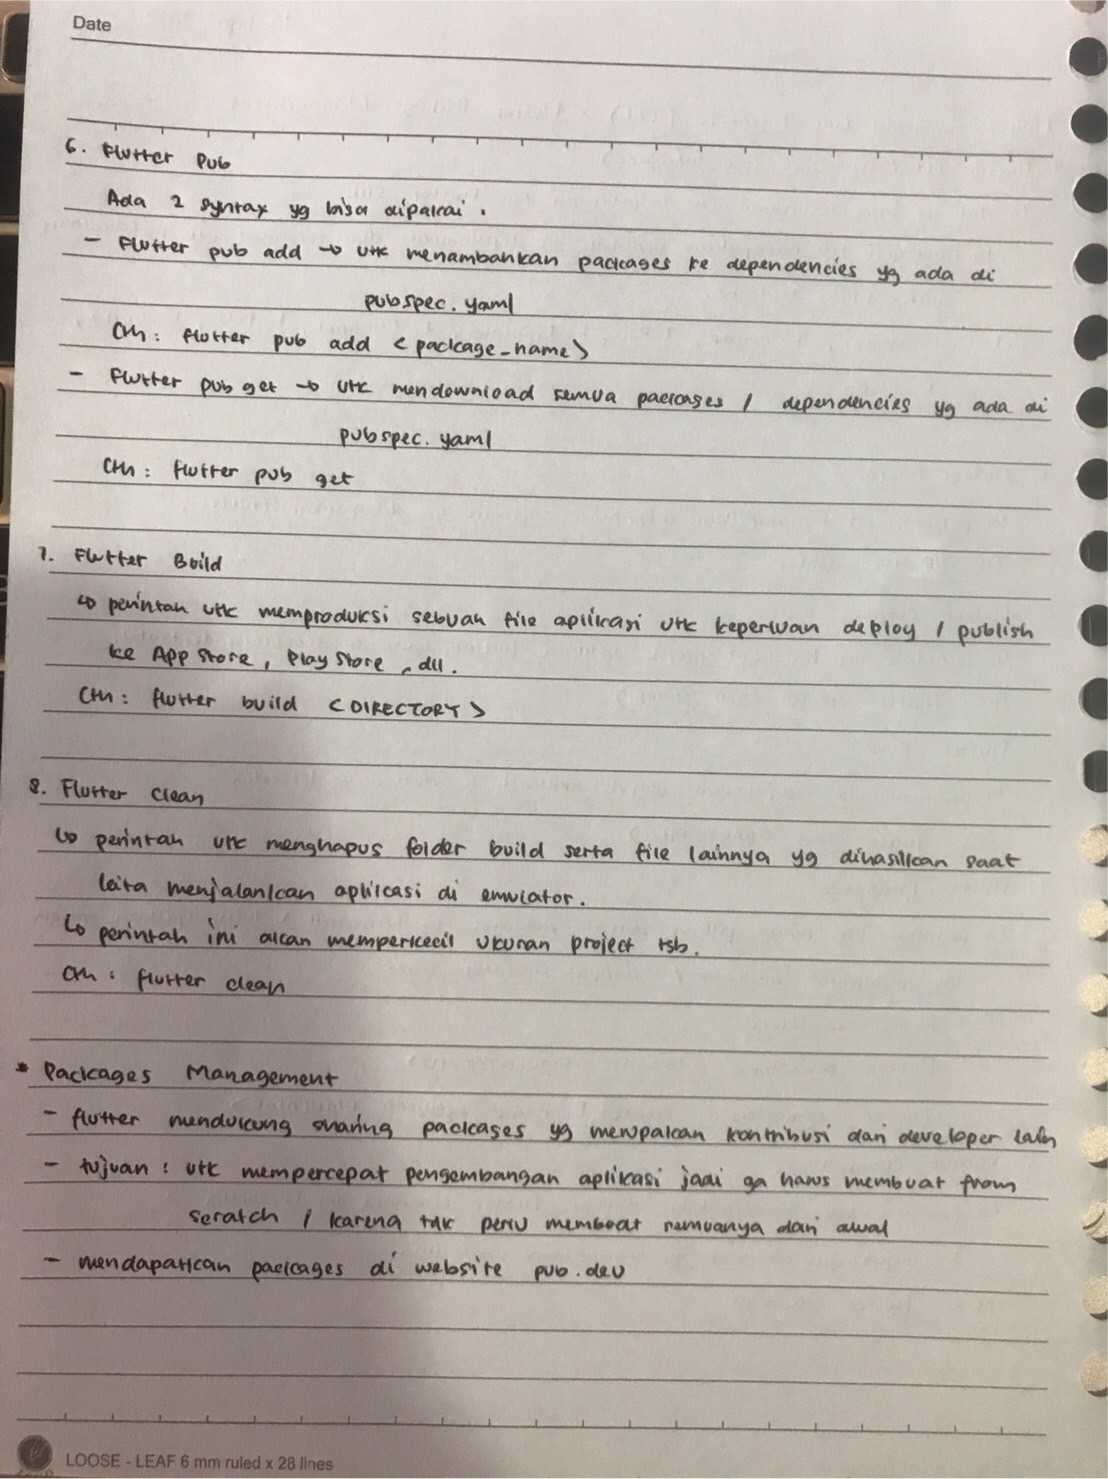 Date
6. Flutter Pub
Ada 2 syntax yg bisa dipakai.
- Flutter pub add → utk menambahkan packages ke dependencies yg ada di
pubspec.yaml
Cth: flutter pub add <package_name>
- Flutter pub get → utk mendownload semua packages / dependencies yg ada di
pubspec.yaml
Cth: flutter pub get
7. Flutter Build
↳ perintah utk memproduksi sebuah file aplikasi utk keperluan deploy / publish
ke App Store, Play Store, dll.
Cth: flutter build <DIRECTORY>
8. Flutter Clean
↳ perintah utk menghapus folder build serta file lainnya yg dihasilkan saat
kita menjalankan aplikasi di emulator.
↳ perintah ini akan memperkecil ukuran project tsb.
Cth: flutter clean
* Packages Management
- flutter mendukung sharing packages yg merupakan kontribusi dari developer lain
- tujuan : utk mempercepat pengembangan aplikasi jadi ga harus membuat from
scratch / karena tdk perlu membuat semuanya dari awal
- mendapatkan packages di website pub.dev
LOOSE - LEAF 6 mm ruled x 28 lines